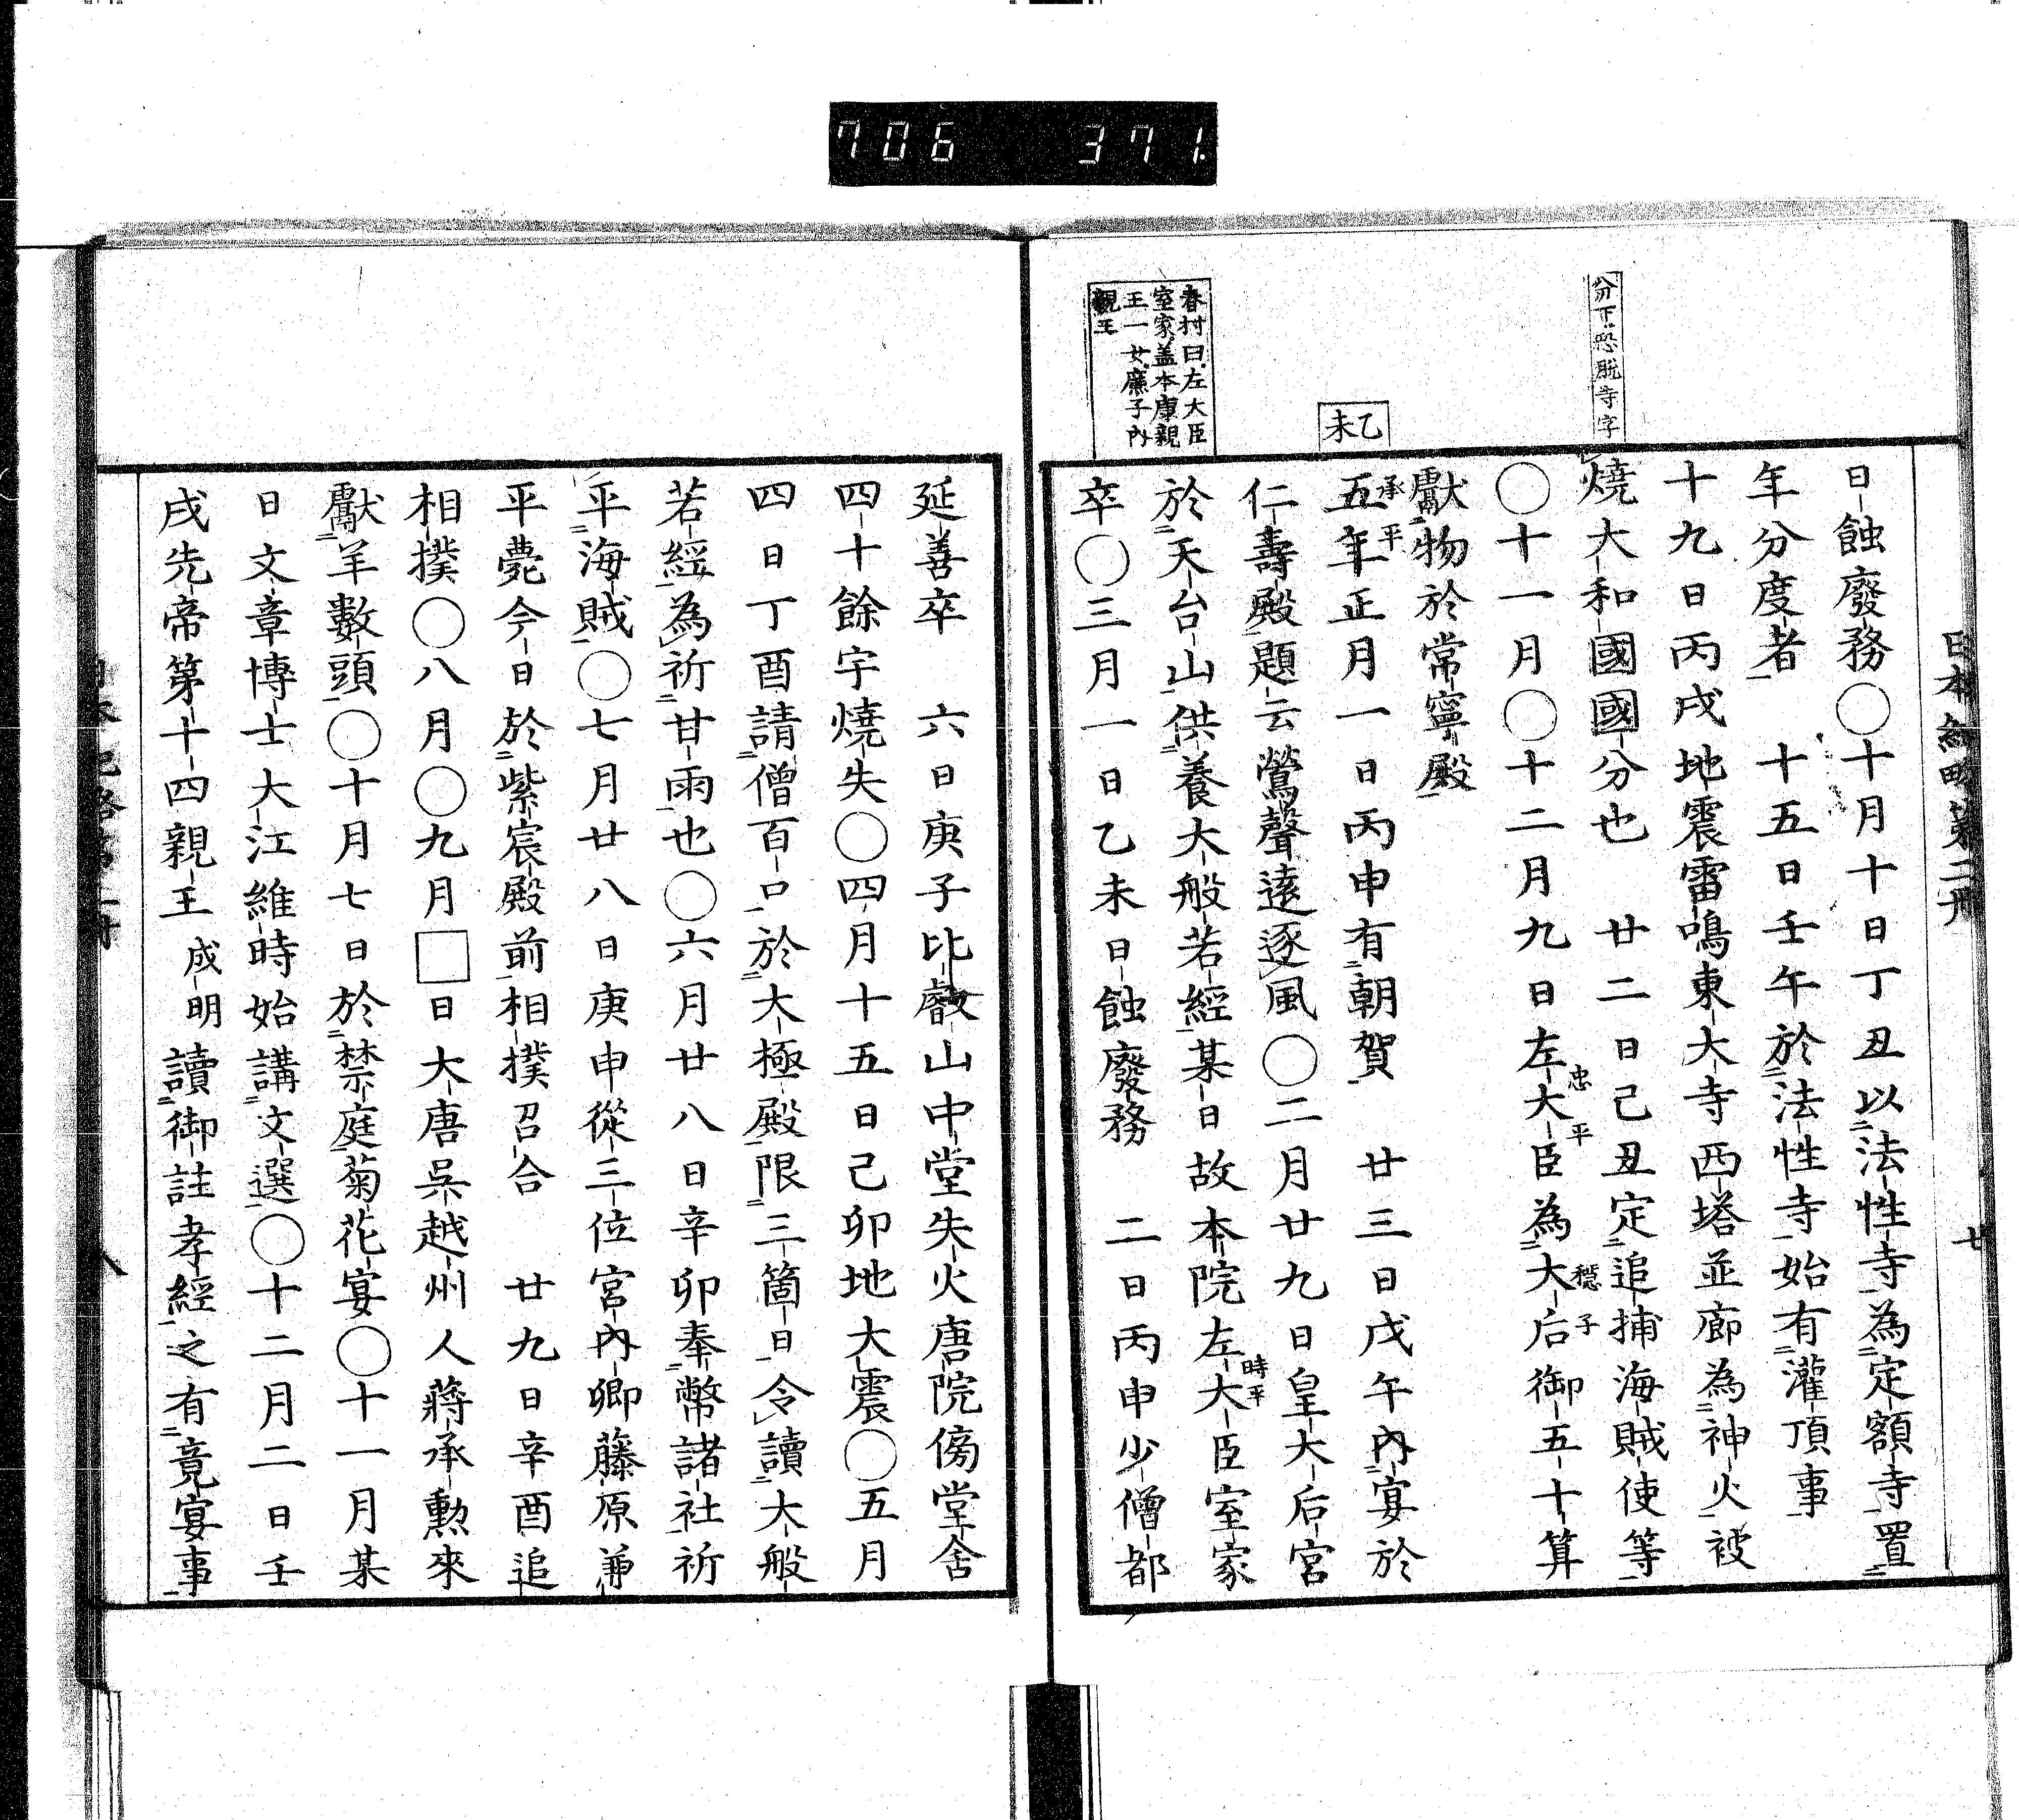 706 371.
日本紀略第二冊 七
分下恐脱寺字
乙未
春村曰左大臣
室家蓋本康親
王一女廉子內
親王
日蝕廢務〇十月十日丁丑以法性寺為定額寺置
年分度者 十五日壬午於法性寺始有灌頂事
十九日丙戌地震雷鳴東大寺西塔並廊為神火被
燒大和國國分也 廿二日己丑定追捕海賊使等
〇十一月〇十二月九日左大臣為大后御五十算
忠平
穩子
獻物於常寧殿
承平
五年正月一日丙申有朝賀 廿三日戊午內宴於
仁壽殿題云鶯聲遠逐風〇二月廿九日皇大后宮
於天台山供養大般若經某日故本院左大臣室家
時平
卒〇三月一日乙未日蝕廢務 二日丙申少僧都
延善卒 六日庚子比叡山中堂失火唐院傍堂舍
四十餘宇燒失〇四月十五日己卯地大震〇五月
四日丁酉請僧百口於大極殿限三箇日令讀大般
若經為祈甘雨也〇六月廿八日辛卯奉幣諸社祈
平海賊〇七月廿八日庚申從三位宮內卿藤原兼
平薨今日於紫宸殿前相撲召合 廿九日辛酉追
相撲〇八月〇九月□日大唐吳越州人蔣承勲來
獻羊數頭〇十月七日於禁庭菊花宴〇十一月某
日文章博士大江維時始講文選〇十二月二日壬
戌先帝第十四親王成明讀御註孝經之有竟宴事
八